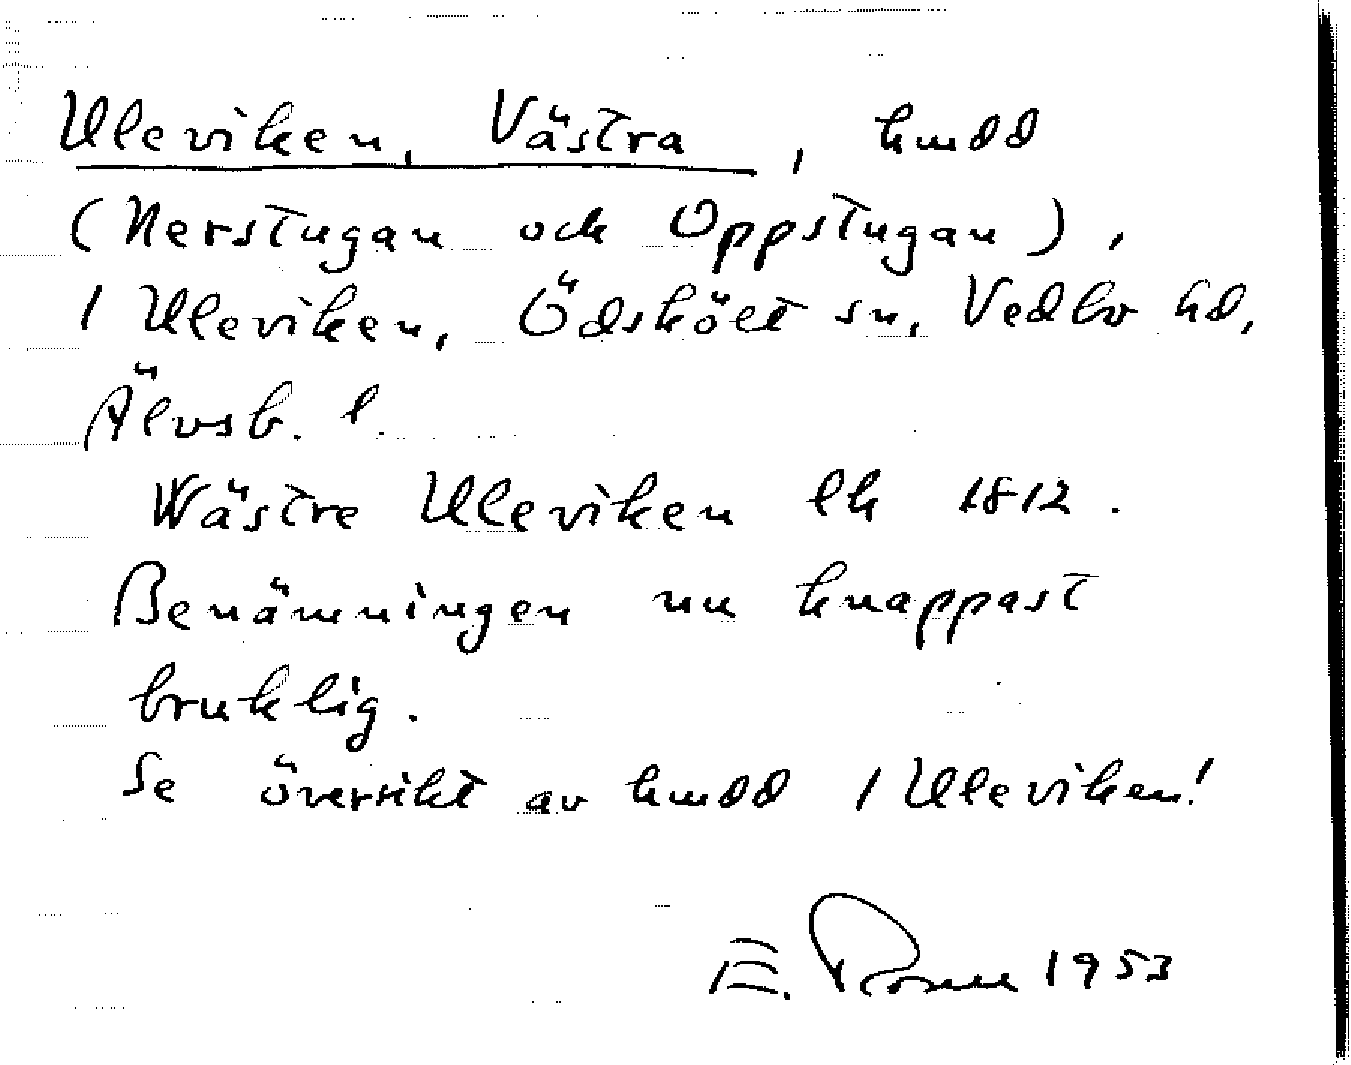 Uleviken, Västra, hmdd
(Nerstugan och Oppstugan),
/ Uleviken, Ödsköлt sn, Vedbo hd,
Älvsb. l.
Wästre Uleviken lk 1812.
Benämningen nu knappast
bruklig.
Se översikt av hmdd / Uleviken!
E. 1953